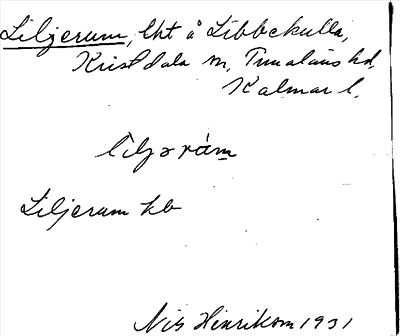 Liljerum, lht å Libbekulla,
Kristdala sn, Tunaläns hd,
Kalmar l.
Liljerum kb
Nils Henrikson 1931